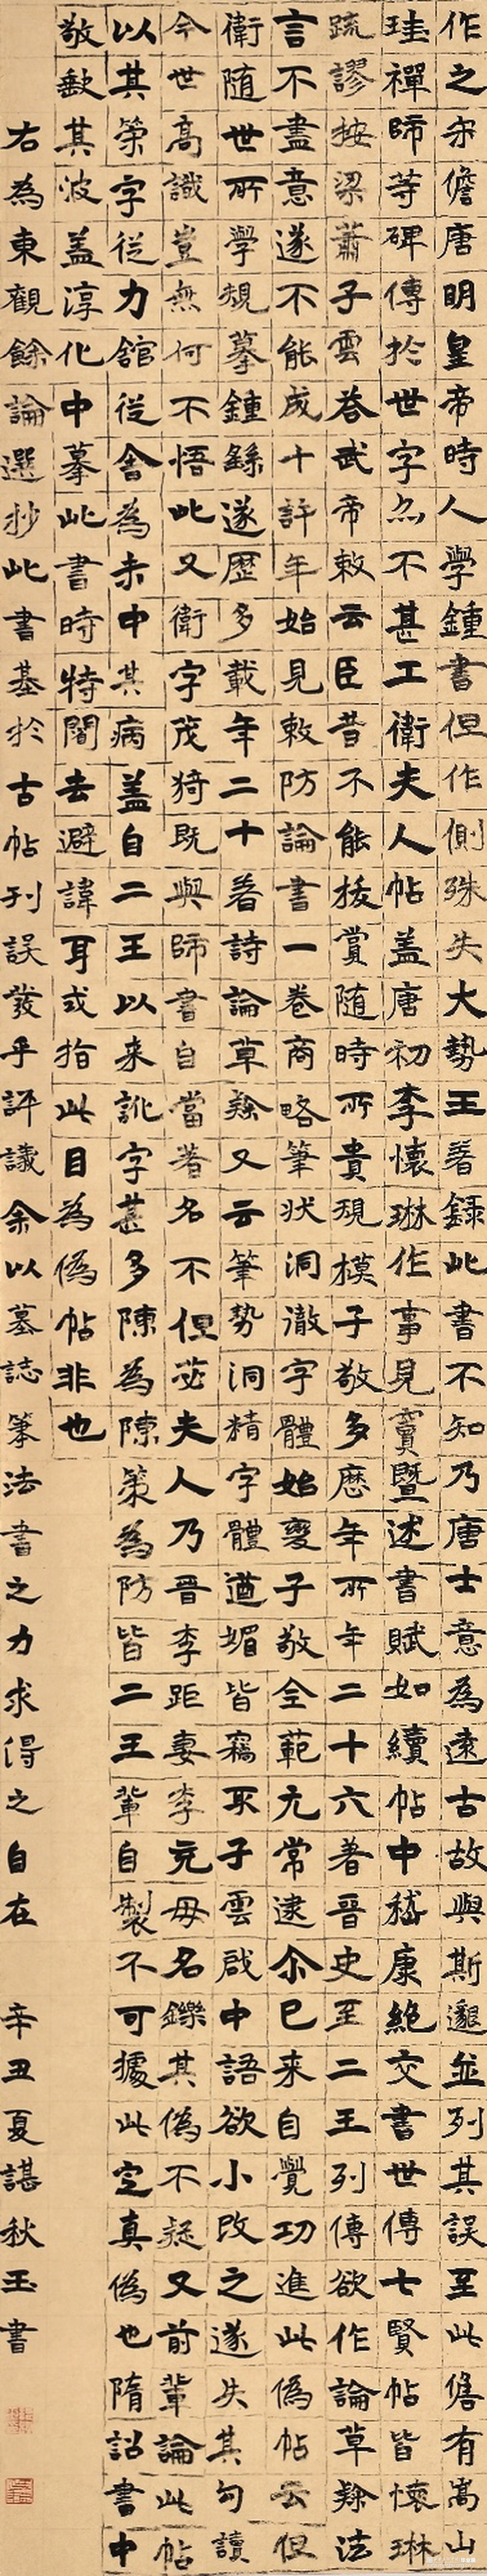 作之宋儋唐明皇帝時人學鍾書但作側殊失大勢王著錄此書不知乃唐士意為遠古故與斯邈並列其誤至此儋有嵩山
珪禪師等碑傳於世字亦不甚工衛夫人帖盖唐初李懷琳作事見竇暨述書賦如續帖中嵇康絶交書世傳七賢帖皆懷琳
疏謬按梁蕭子雲荅武帝敕云臣昔不能拔賞随時所貴規模子敬多歷年所年二十六著晉史至二王列傳欲作論草隸法
言不盡意遂不能成十許年始見敕防論書一卷商略筆狀洞澈字體始變子敬全範元常逮尒已来自覺功進此偽帖云但
衛随世所學規摹鍾繇遂歷多載年二十著詩論草隸又云筆勢洞精字體遒媚皆竊取子雲啟中語欲小改之遂失其句讀
今世高識豈無何不悟此又衛字茂猗既與師書自當著名不但苾夫人乃晉李距妻李充母名鑠其偽不疑又前輩論此帖
以其策字從力舘從舍為未中其病盖自二王以来訛字甚多陳為陳策為防皆二王輩自製不可據此定真偽也隋詔書中
敬其波盖淳化中摹此書時特闊去避諱耳或指此目為偽帖非也
右為東觀餘論選抄此書基於古帖刊誤發乎評議余以墓誌筆法書之力求得之自在 辛丑夏諶秋玉書